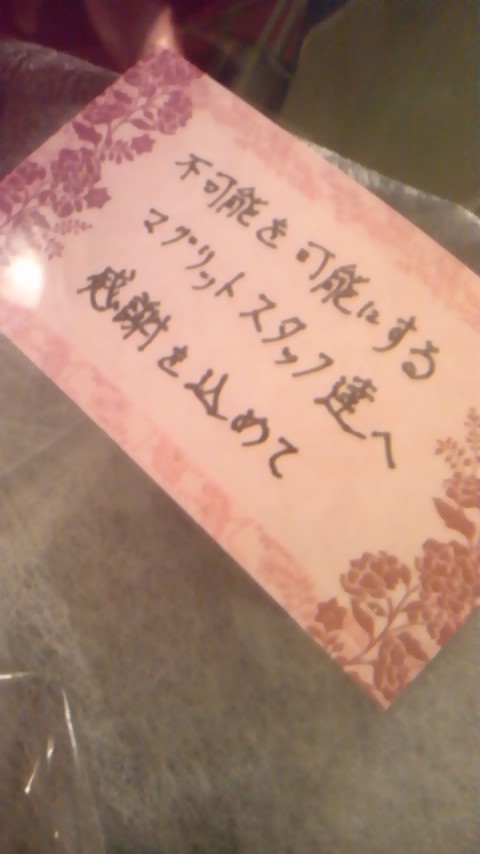 不可能を可能にする
マグリットスタッフ達へ
感謝を込めて